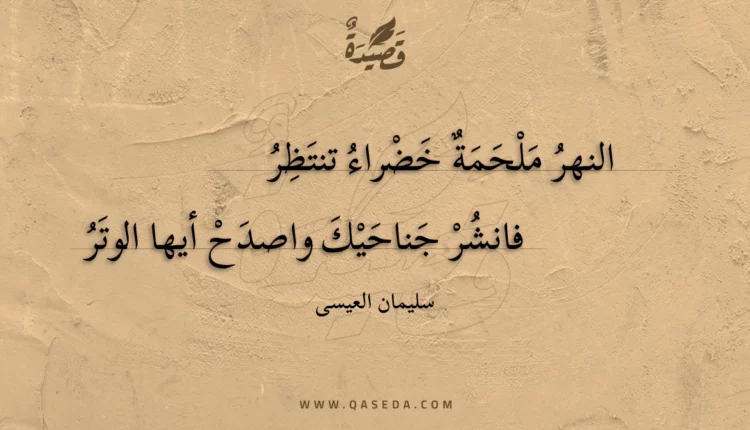 قَصِيدَةٌ
النهرُ مَلْحَمَةٌ خَضْراءُ تنتَظِرُ
فانشُرْ جَناحَيْكَ واصدَحْ أيها الوتَرُ
سليمان العيسى
WWW.QASEDA.COM